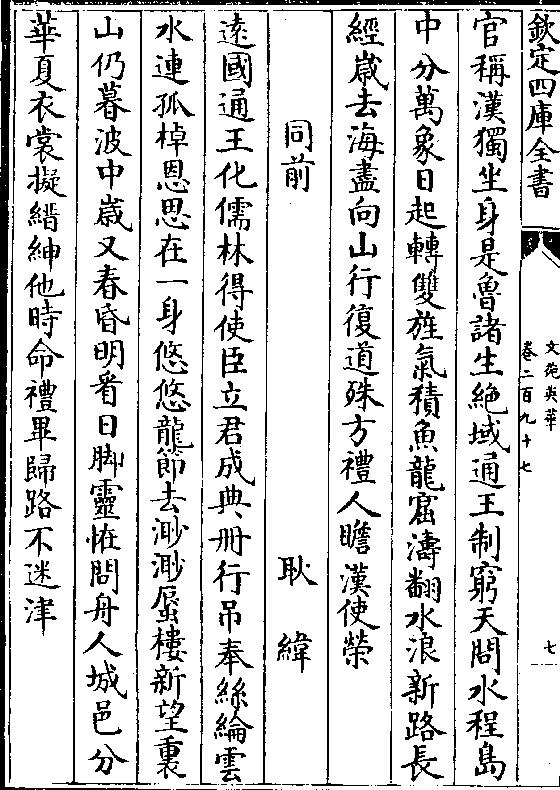 欽定四庫全書
文苑英華
卷二百九十七
七
官稱漢獨坐身是魯諸生絶域通王制窮天問水程島
中分萬象日起轉雙旌氣積魚龍窟濤翻水浪新路長
經嵗去海盡向山行復道殊方禮人瞻漢使榮
同前
耿緯
逺國通王化儒林得使臣立君成典冊行吊奉絲綸雲
水連孤棹恩思在一身悠悠龍節去渺渺蜃樓新望裏
山仍暮波中嵗又春昏明看日脚靈恠問舟人城邑分
華夏衣裳擬縉紳他時命禮畢歸路不迷津